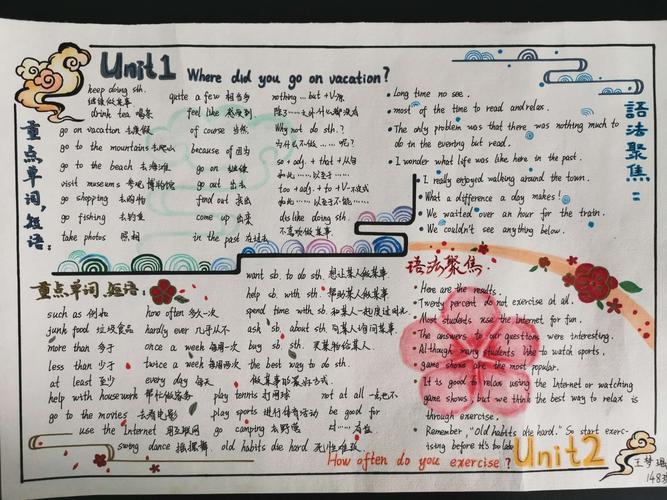 Unit1 Where did you go on vacation?
重点单词,短语:
keep doing sth.
继续做某事
drink tea 喝茶
go on vacation 去度假
go to the mountains 去爬山
go to the beach 去海滩
visit museums 参观博物馆
go shopping 去购物
go fishing 去钓鱼
take photos 照相
quite a few 相当多
feel like 感受到
of course 当然
because of 因为
go on 继续
go out 出去
find out 找出
come up 出来
in the past 在过去
nothing ... but + V-原
除了……之外什么都没有
Why not do sth.?
为什么不做……呢?
so + adj. + that + 从句
如此……以至于……
too + adj. + to + V-
如此……以至于不能……
dislike doing sth.
不喜欢做某事
語法聚焦:
Long time no see.
most of the time to read and relax.
The only problem was that there was nothing much to
do in the evening but read.
I wonder what life was like here in the past.
I really enjoyed walking around the town.
What a difference a day makes!
We waited over an hour for the train.
We couldn't see anything below.
重点单词、短语:
such as 例如
junk food 垃圾食品
more than 多于
less than 少于
at least 至少
help with housework 帮忙做家务
go to the movies 去看电影
use the Internet 用互联网
swing dance 摇摆舞
how often 多久一次
hardly ever 几乎从不
once a week 每周一次
twice a week 每周两次
every day 每天
play tennis 打网球
play sports 进行体育活动
go camping 去野营
old habits die hard 积习难改
want sb. to do sth. 想让某人做某事
help sb. with sth. 帮助某人做某事
spend time with sb. 和某人一起度过时光
ask sb. about sth. 向某人询问某事
buy sb. sth. 买某物给某人
the best way to do sth.
做某事的最好方式
not at all 一点也不
be good for
对……有益
语法聚焦
Here are the results.
Twenty percent do not exercise at all.
Most students use the Internet for fun.
The answers to our questions were interesting.
Although many students like to watch sports,
game shows are the most popular.
It is good to relax using the Internet or watching
game shows but we think the best way to relax is
through exercise.
Remember, "Old habits die hard." So start exerc-
ising before it's too late
How often do you exercise? Unit2
王梦
148